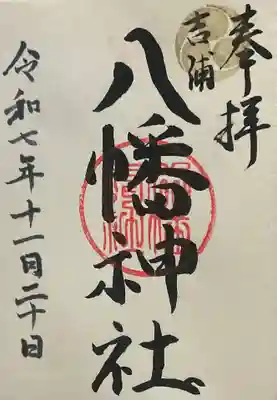 奉拝
吉浦
八幡神社
令和七年十一月二十日